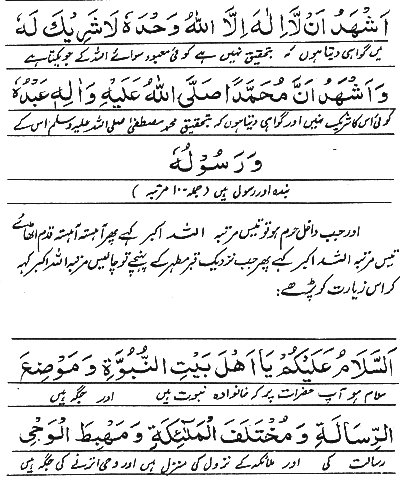 اَشْهَدُ اَنْ لَّا اِلٰهَ اِلَّا اللهُ وَحْدَهٗ لَا شَرِيْكَ لَهٗ
میں گواہی دیتا ہوں کہ بتحقیق نہیں ہے کوئی معبود سوائے اللہ کے جو یکتا ہے
وَاَشْهَدُ اَنَّ مُحَمَّدًا صَلَّى اللهُ عَلَيْهِ وَاٰلِهٖ عَبْدُهٗ
کوئی اس کا شریک نہیں اور گواہی دیتا ہوں کہ بتحقیق محمد مصطفیٰ صلی اللہ علیہ وسلم اس کے
وَرَسُوْلُهٗ
بندہ اور رسول ہیں (جملہ ۱۰۰ مرتبہ )
اور جب داخل حرم ہو تو تیس مرتبہ اللہ اکبر کہے پھر آہستہ آہستہ قدم اٹھائے
تیس مرتبہ اللہ اکبر کہے پھر جب نزدیک قبر مطہر کے پہنچے تو چالیس مرتبہ اللہ اکبر کہہ
کر اس زیارت کو پڑھے:
اَلسَّلَامُ عَلَيْكُمْ يَا اَهْلَ بَيْتِ النُّبُوَّةِ وَ مَوْضِعَ
سلام ہو آپ حضرات پر کہ خانوادہ نبوت ہیں اور جگہ ہیں
الرِّسَالَةِ وَ مُخْتَلَفَ الْمَلٰٓئِكَةِ وَ مَهْبِطَ الْوَحْيِ
رسالت کی اور ملائکہ کے نزول کی منزل ہیں اور وحی اترنے کی جگہ ہیں